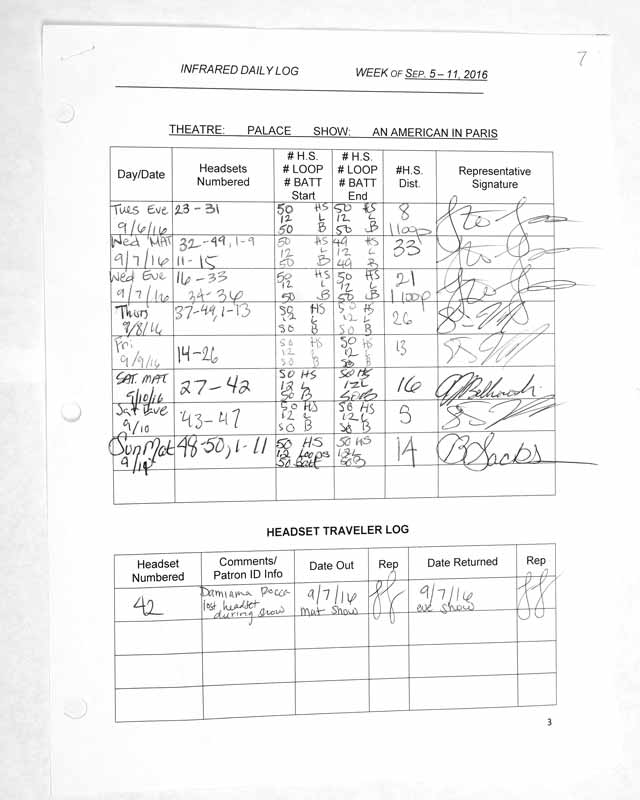 7
INFRARED DAILY LOG WEEK OF SEP. 5 – 11, 2016
THEATRE: PALACE SHOW: AN AMERICAN IN PARIS
Day/Date Headsets Numbered # H.S. # LOOP # BATT Start # H.S. # LOOP # BATT End #H.S. Dist. Representative Signature
Tues Eve 9/6/16 23-31 50 HS 12 L 50 B 50 HS 12 L 50 B 8 1 loop
Wed MAT 9/7/16 32-49, 1-9 11-15 50 HS 12 L 50 B 49 HS 12 L 49 B 33
Wed Eve 9/7/16 16-33 34-36 50 HS 12 L 50 B 50 HS 12 L 50 B 21 1 loop
Thurs 9/8/16 37-49, 1-13 50 HS 12 L 50 B 50 HS 12 L 50 B 26
Fri 9/9/16 14-26 50 HS 12 L 50 B 50 HS 12 L 50 B 13
SAT. MAT 9/10/16 27-42 50 HS 12 L 50 B 50 HS 12L 50B 16
Sat Eve 9/10 43-47 50 HS 12 L 50 B 50 HS 12 L 50 B 5
Sun Mat 48-50, 1-11 50 HS 12 Loops 50 Batt 50 HS 12L 50B 14 B Sacks
HEADSET TRAVELER LOG
Headset Numbered Comments/ Patron ID Info Date Out Rep Date Returned Rep
42 Damiama Rocca lost headset during show 9/7/16 mat show 9/7/16 eve show
3